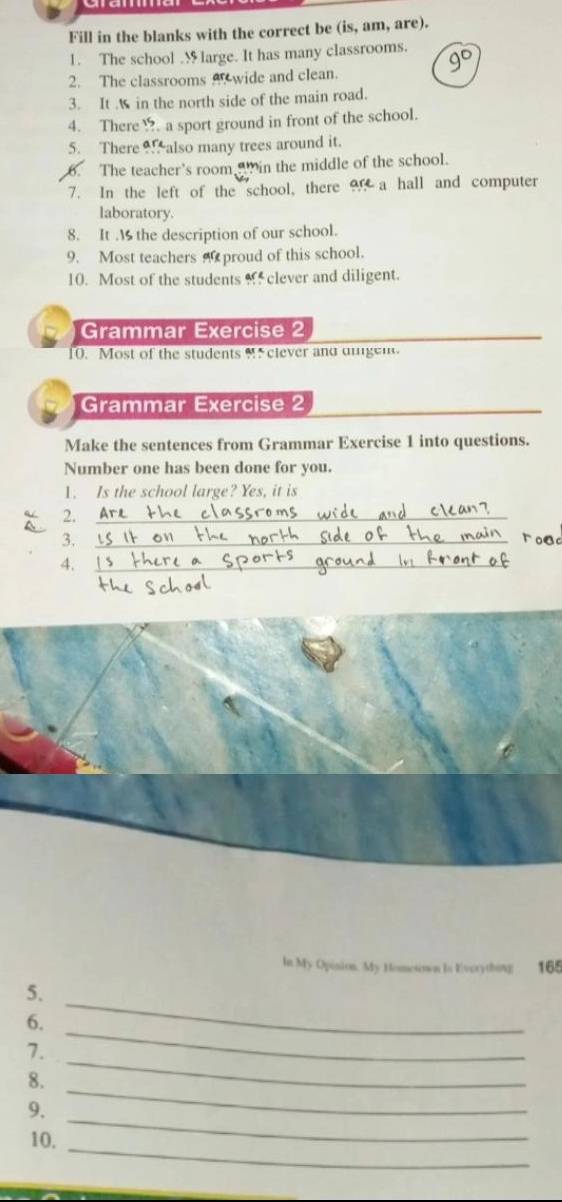 Grammar Exercise 1
Fill in the blanks with the correct be (is, am, are).
90
1. The school .is large. It has many classrooms.
2. The classrooms are wide and clean.
3. It .is in the north side of the main road.
4. There is.. a sport ground in front of the school.
5. There are also many trees around it.
6. The teacher's room am in the middle of the school.
7. In the left of the school, there are a hall and computer
laboratory.
8. It .is the description of our school.
9. Most teachers are proud of this school.
10. Most of the students are clever and diligent.
Grammar Exercise 2
10. Most of the students are clever and diligent.
Grammar Exercise 2
Make the sentences from Grammar Exercise 1 into questions.
Number one has been done for you.
1. Is the school large? Yes, it is
2. Are the classroms wide and clean?
3. is it on the north side of the main road
4. is there a sports ground in front of
the school
In My Opinion, My Hometown Is Everything 165
5.
6.
7.
8.
9.
10.